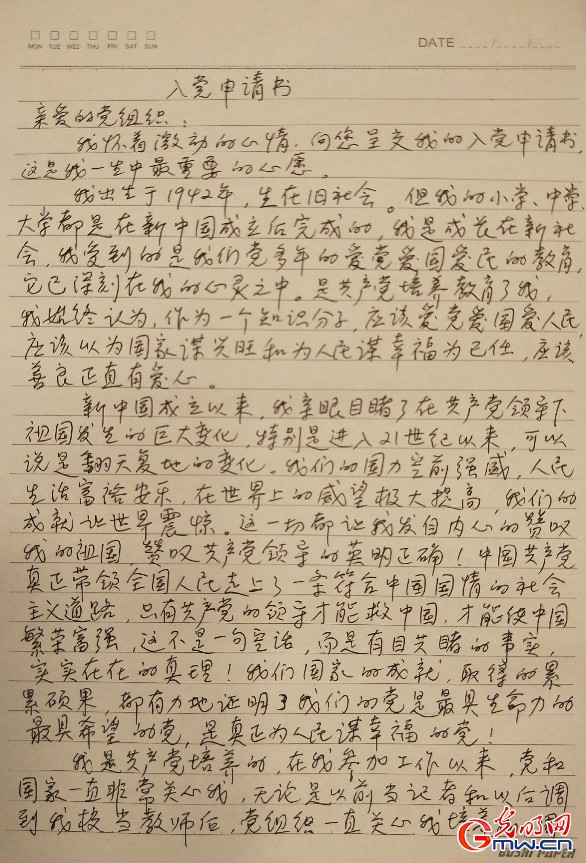 MON TUE WED THU FRI SAT SUN
DATE
入党申请书
亲爱的党组织：
我怀着激动的心情，向您呈交我的入党申请书，
这是我一生中最重要的心愿。
我出生于1942年，生在旧社会。但我的小学、中学、
大学都是在新中国成立后完成的，我是成长在新社
会，我受到的是我们党多年的爱党爱国爱民的教育，
它已深刻在我的心灵之中。是共产党培养教育了我，
我始终认为，作为一个知识分子，应该爱党爱国爱人民，
应该以为国家谋兴旺和为人民谋幸福为己任，应该
善良正直有爱心。
新中国成立以来，我亲眼目睹了在共产党领导下
祖国发生的巨大变化，特别是进入21世纪以来，可以
说是翻天复地的变化。我们的国力空前强盛，人民
生活富裕安乐，在世界上的威望极大提高，我们的
成就让世界震惊。这一切都让我发自内心的赞叹
我的祖国，赞叹共产党领导的英明正确！中国共产党
真正带领全国人民走上了一条符合中国国情的社会
主义道路，只有共产党的领导才能救中国，才能使中国
繁荣富强，这不是一句空话，而是有目共睹的事实，
实实在在的真理！我们国家的成就，取得的累
累硕果，都有力地证明了我们的党是最具生命力的
最具希望的党，是真正为人民谋幸福的党！
我是共产党培养的，在我参加工作以来，党和
国家一直非常关心我，无论是以前当记者和以后调
到我校当教师后，党组织一直关心我培养
光明网
GMW.cn
GUSHI PAPER